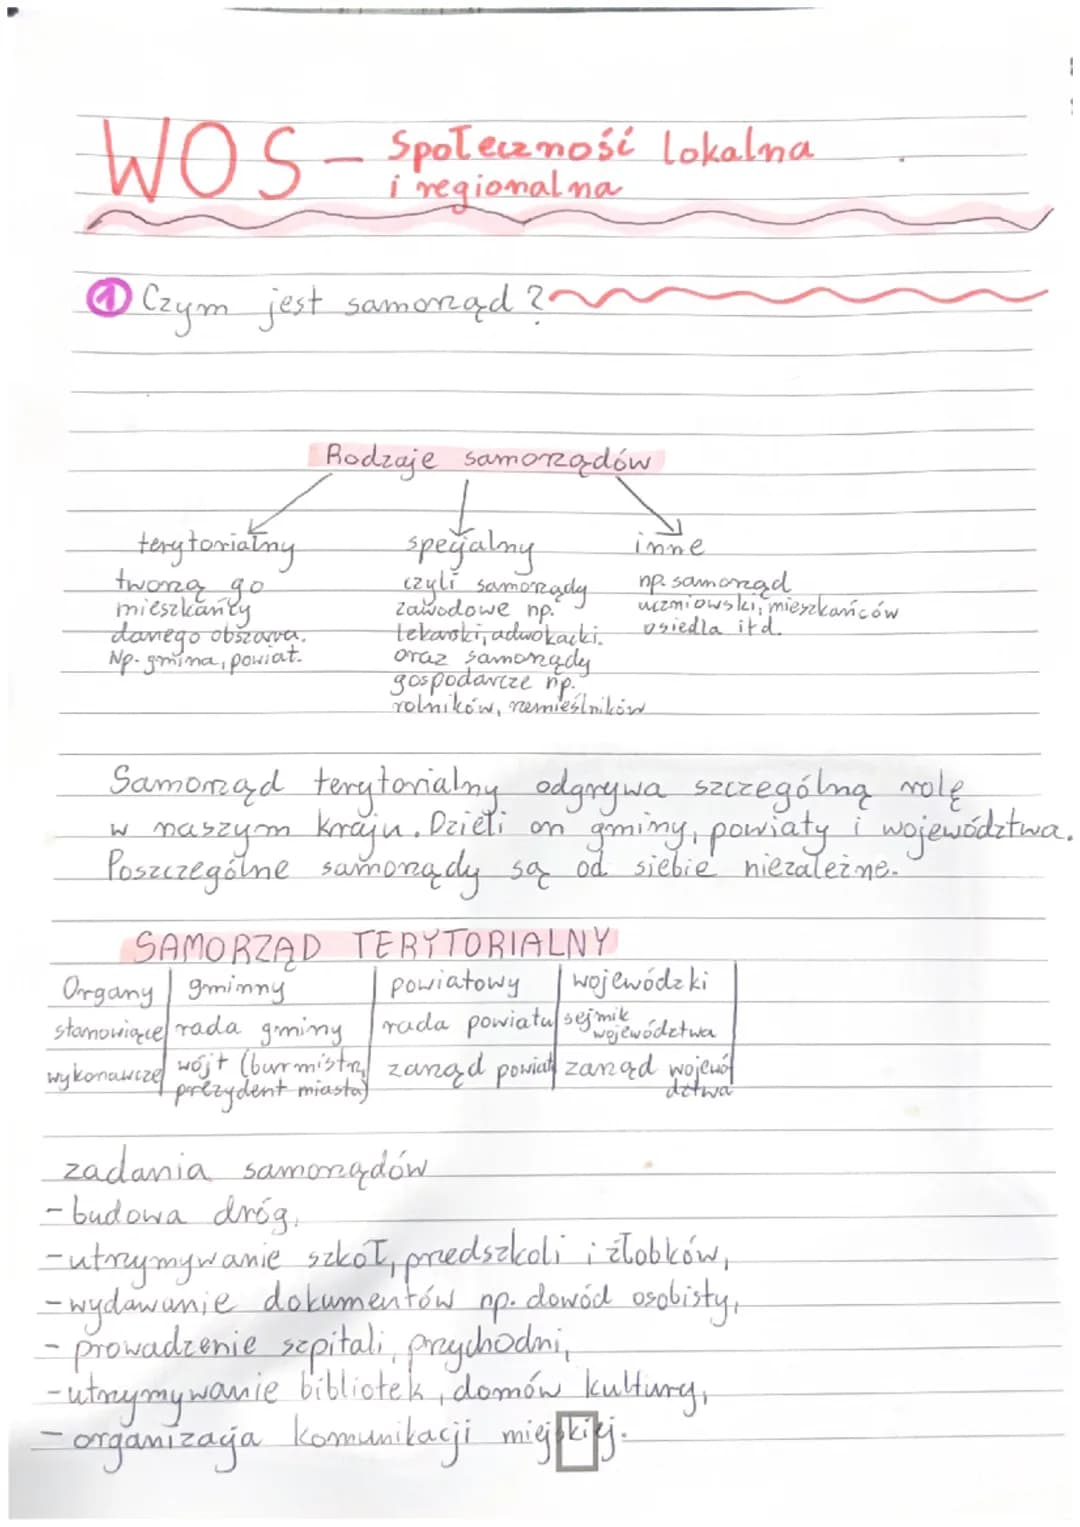 WOS - Społeczność lokalna
i regionalna
① Czym jest samorząd?
Rodzaje samorządów
terytorialny
tworzą go
mieszkańcy
danego obszaru.
Np. gmina, powiat.
specjalny
czyli samorządy
zawodowe np.
lekarski, adwokacki.
oraz samorządy
gospodarcze np.
rolników, rzemieślników
inne
np. samorząd
uczniowski, mieszkańców
osiedla itd.
Samorząd terytorialny odgrywa szczególną rolę
w naszym kraju. Dzieli on gminy, powiaty i województwa.
Poszczególne samorządy są od siebie niezależne.
SAMORZĄD TERYTORIALNY
Organy gminny powiatowy wojewódzki
stanowiące rada gminy rada powiatu sejmik województwa
wykonawcze wójt (burmistrz, prezydent miasta) zarząd powiat zarząd województwa
zadania samorządów
- budowa dróg,
- utrzymywanie szkół, przedszkoli i żłobków,
- wydawanie dokumentów np. dowód osobisty,
- prowadzenie szpitali, przychodni,
- utrzymywanie bibliotek, domów kultury,
- organizacja komunikacji miejskiej.